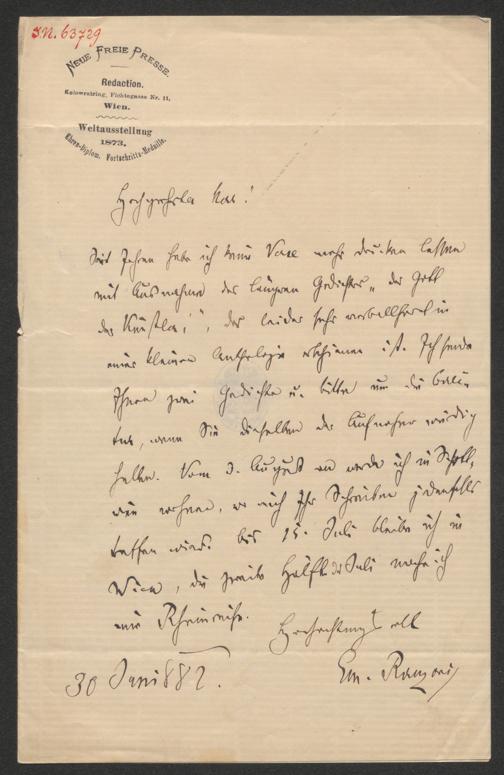 I.N. 63729
NEUE FREIE PRESSE.
Redaction.
Kolowratring, Fichtegasse Nr. 11,
Wien.
Weltausstellung
1873.
Ehren-Diplom. Fortschritts-Medaille.
Hochgeehrter Herr!
Seit Jahren habe ich keine Verse mehr drucken lassen
mit Ausnahme des längeren Gedichtes „der Gott
des Künstlers“, das leider sehr verballhornt in
einer kleinen Anthologie erschienen ist. Ich sende
Ihnen zwei Gedichte u. bitte um die
wenn Sie dieselben der Aufnahme würdig
halten. Vom 3. August an werde ich in
wien wohnen, wo mich Ihr Schreiben jedenfalls
treffen wird. Bis 15. Juli bleibe ich in
Wien, die zweite Hälfte Juli mache ich
eine Rheinreise.
Hochachtungsvoll
Em. Ranzoni
30 Juni 882.